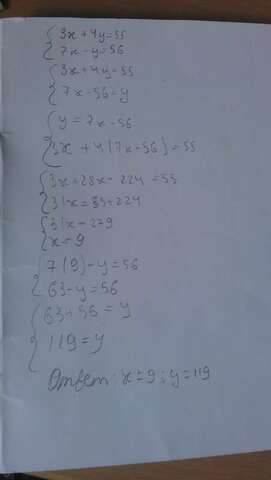 3x + 4y = 55
7x - y = 56
3x + 4y = 55
7x - 56 = y
y = 7x - 56
3x + 4(7x - 56) = 55
3x + 28x - 224 = 55
31x = 55 + 224
31x = 279
x = 9
7(9) - y = 56
63 - y = 56
63 + 56 = y
119 = y
Ответ: x = 9; y = 119